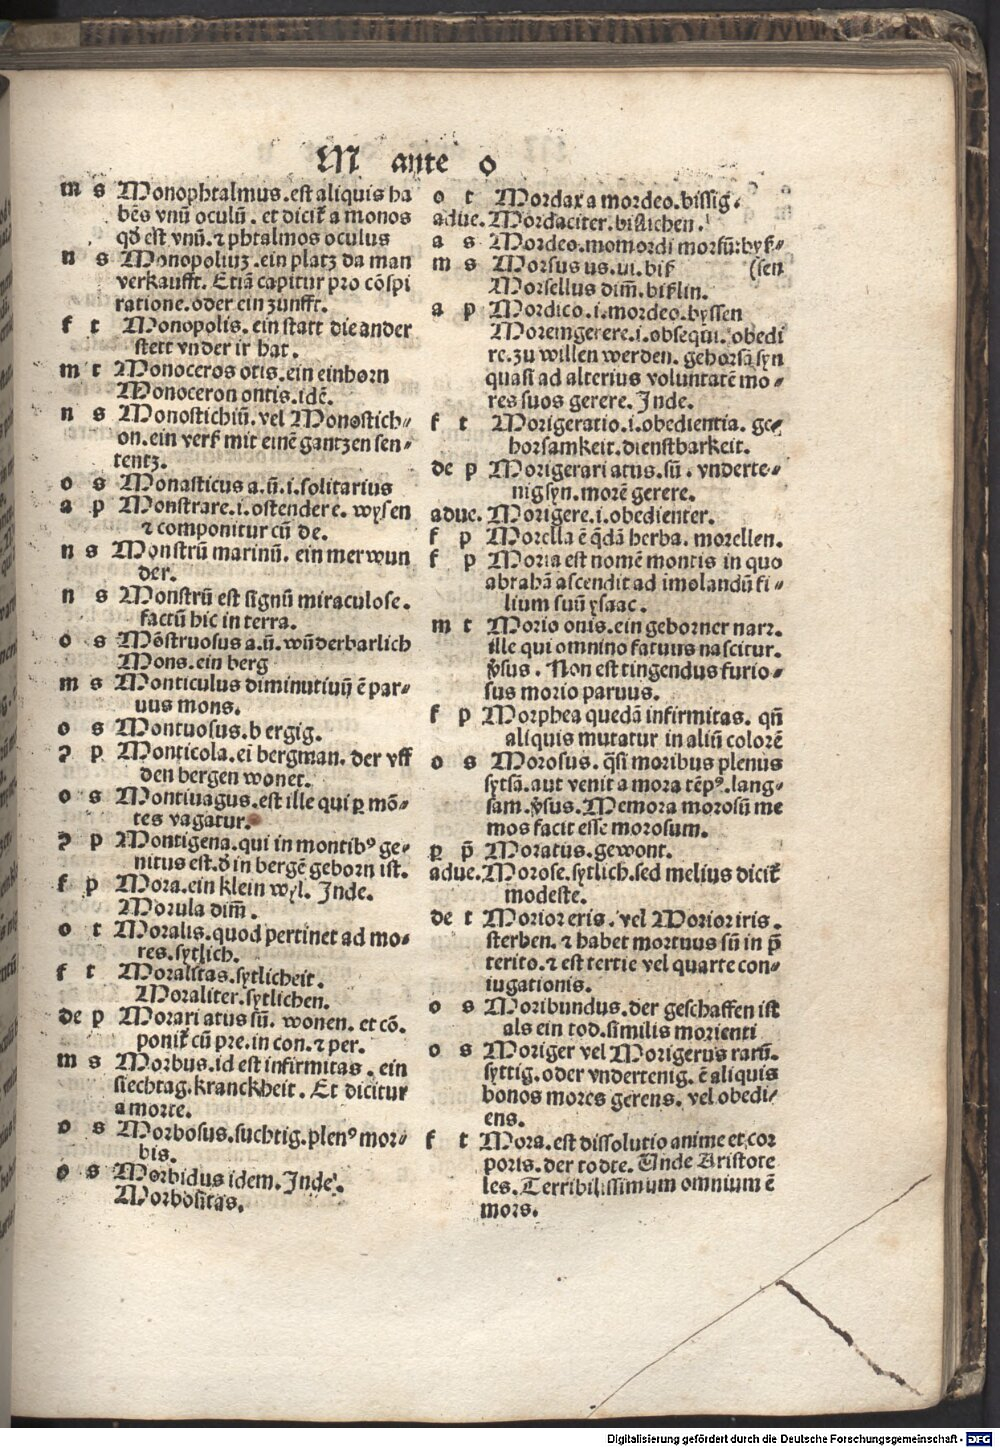 M ante o
m s Monophtalmus.est aliquis ha
bẽs vnũ oculũ. et dicit̃ a monos
qđ est vnũ. ⁊ phtalmos oculus
n s Monopoliuʒ.ein platʒ da man
verkaufft. Etiã capitur pro cõspi
ratione.oder ein zunfft.
f t Monopolis. ein statt die ander
stett vnder ir hat.
m t Monoceros otis.ein einhorn
Monoceron ontis.idẽ.
n s Monostichiũ. vel Monostich⸗
on.ein verß mit einẽ gantzen sen⸗
tentʒ.
o s Monasticus a.ũ.i.solitarius
a p Monstrare.i.ostendere. wysen
⁊ componitur cũ de.
n s Monstrũ marinũ. ein merwun
der.
n s Monstrũ est signũ miraculose.
factũ hic in terra.
o s Mõstruosus a.ũ. wũderbarlich
Mons.ein berg
m s Monticulus diminutiuũ ẽ par⸗
uus mons.
o s Montuosus.bergig.
ꝯ p Monticola.ei bergman. der vff
den bergen wonet.
o s Montiuagus.est ille qui ꝑ mõ⸗
tes vagatur.
ꝯ p Montigena.qui in montibꝰ ge⸗
nitus est.đ in bergẽ geborn ist.
f p Mora.ein klein wyl. Inde.
Morula dim̃.
o t Moralis.quod pertinet ad mo⸗
res.sytlich.
f t Moralitas.sytlicheit.
Moraliter.sytlichen.
de p Morari atus sũ. wonen. et cõ.
ponit̃ cũ pre.in con.⁊ per.
m s Morbus.id est infirmitas. ein
siechtag.kranckheit. Et dicitur
a morte.
o s Morbosus.suchtig.plenꝰ mor⸗
bis.
o s Morbidus idem.Inde.
Morbositas.
o t Mordax a mordeo.bissig.
adue. Mordaciter.bißlichen.
a s Mordeo.momordi morsũ:byß⸗
m s Morsus us.ui.biß (sen
Morsellus dim̃.bißlin.
a p Mordico.i.mordeo.byssen
Moremgerere.i.obsequi. obedi
re.zu willen werden. gehorsã syn
quasi ad alterius voluntatẽ mo⸗
res suos gerere. Inde.
f t Morigeratio.i.obedientia. ge⸗
horsamkeit.dienstbarkeit.
de p Morigerari atus.sũ. vnderte⸗
nig syn.morẽ gerere.
adue. Morigere.i.obedienter.
f p Morella ẽ q̃dã herba. morellen.
f p Moria est nomẽ montis in quo
abrahã ascendit ad imolandũ fi⸗
lium suũ ysaac.
m t Morio onis.ein geborner narr.
ille qui omnino fatuus nascitur.
v̉sus. Non est tingendus furio⸗
sus morio paruus.
f p Morphea quedã infirmitas. qñ
aliquis mutatur in aliũ colorẽ
o s Morosus. q̃si moribus plenus
sytsã.aut venit a mora tẽpꝰ.lang⸗
sam.v̉sus.Memora morosũ me
mos facit esse morosum.
ꝑ p̃ Moratus.gewont.
adue. Morose.sytlich.sed melius dicit̃
modeste.
de t Morior eris. vel Morior iris.
sterben. ⁊ habet mortuus sũ in p̃
terito.⁊ est tertie vel quarte con⸗
iugationis.
o s Moribundus.der geschaffen ist
als ein tod.similis morienti
o s Moriger vel Morigerus rarũ.
syttig.oder vndertenig. ẽ aliquis
bonos mores gerens. vel obedi⸗
ens.
f t Mora.est dissolutio anime et cor
poris.der todte. Unde Aristote
les. Terribilissimum omnium ẽ
mors.
Digitalisierung gefördert durch die Deutsche Forschungsgemeinschaft - DFG